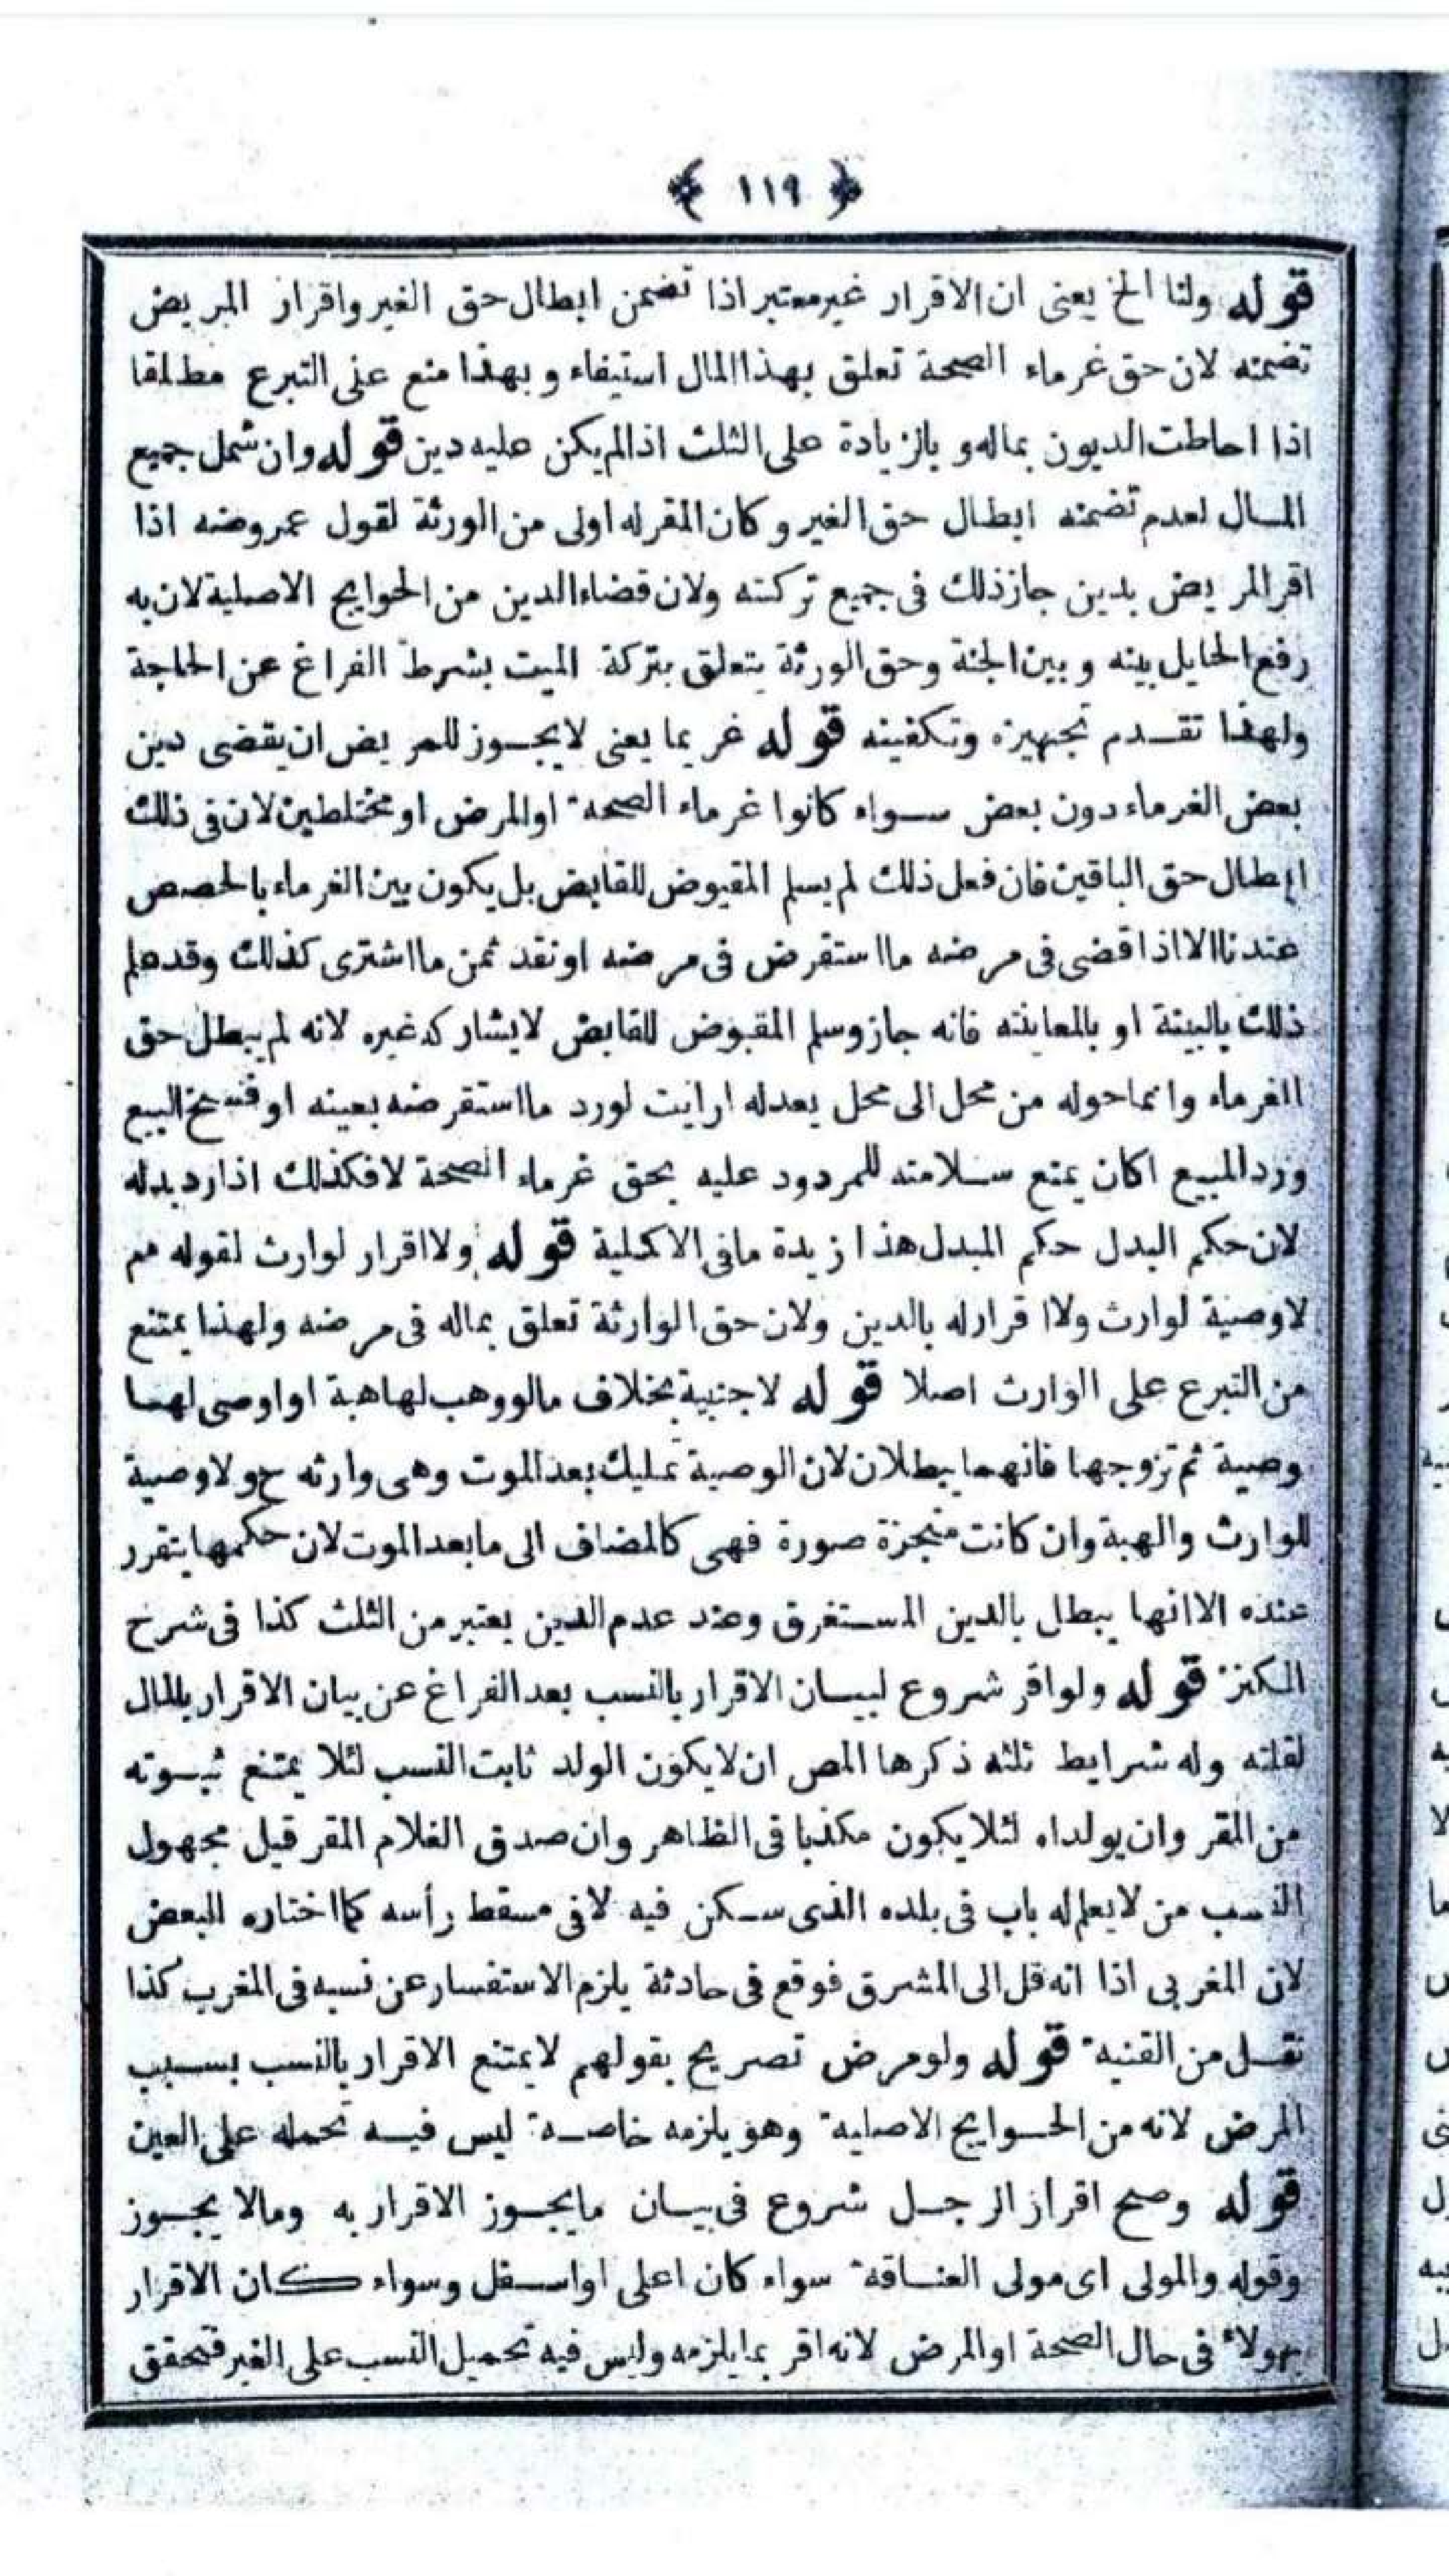 ﴿ ١١٩ ﴾
قوله ولنا الخ يعنى ان الاقرار غير معتبر اذا تضمن ابطال حق الغير واقرار المريض
تضمنه لان حق غرماء الصحة تعلق بهذا المال استيفاء وبهذا منع عنى التبرع مطلقا
اذا احاطت الديون بماله و بالزيادة على الثلث اذا لم يكن عليه دين قوله وان شمل جميع
المال لعدم تضمنه ابطال حق الغير وكان المقر له اولى من الورثة لقول عمر رضه اذا
اقر المريض بدين جاز ذلك فى جميع تركته ولان قضاء الدين من الحوايج الاصلية لان به
رفع الحايل بينه وبين الجنة وحق الورثة يتعلق بتركة الميت بشرط الفراغ عن الحاجة
ولهذا تقدم تجهيزه وتكفينه قوله غريما يعنى لا يجوز للمريض ان يقضى دين
بعض الغرماء دون بعض سواء كانوا غرماء الصحة او المرض او مختلطين لان فى ذلك
ابطال حق الباقين فان فعل ذلك لم يسلم المقبوض للقابض بل يكون بين الغرماء بالحصص
عندنا الا اذا قضى فى مرضه ما استقرض فى مرضه او نقد ثمن ما اشترى كذلك وقد علم
ذلك بالبينة او بالمعاينه فانه جاز وسلم المقبوض للقابض لا يشاركه غيره لانه لم يبطل حق
الغرماء وانما حوله من محل الى محل يعدله ارايت لو رد ما استقرضه بعينه او فسخ البيع
ورد المبيع اكان يمتع سلامته للمردود عليه بحق غرماء الصحة لا فكذلك اذا رد بدله
لان حكم البدل حكم المبدل هذا زبدة ما فى الاكملية قوله ولا اقرار لوارث لقوله عم
لا وصية لوارث ولا اقرار له بالدين ولان حق الوارثة تعلق بماله فى مرضه ولهذا يمتنع
من التبرع على الوارث اصلا قوله لاجنبية بخلاف ما لو وهب لها هبة او اوصى لهما
وصية ثم تزوجها فانهما يبطلان لان الوصية تمليك بعد الموت وهى وارثه ح ولا وصية
للوارث والهبة وان كانت منجزة صورة فهى كالمضاف الى ما بعد الموت لان حكمها يتقرر
عنده الا انها يبطل بالدين المستغرق وعند عدم الدين يعتبر من الثلث كذا فى شرح
الكنز قوله ولو اقر شروع لبيان الاقرار بالنسب بعد الفراغ عن بيان الاقرار بالمال
لقلته وله شرايط ثلثه ذكرها المص ان لا يكون الولد ثابت النسب لئلا يمتنع ثبوته
من المقر وان يولد اه لئلا يكون مكذبا فى الظاهر وان صدق الغلام المقر قيل مجهول
النسب من لا يعلم له باب فى بلده الذى سكن فيه لا فى مسقط رأسه كما اختاره البعض
لان المغربى اذا انه قل الى المشرق فوقع فى حادثة يلزم الاستفسار عن نسبه فى المغرب كذا
نقل من القنية قوله ولو مرض تصريح بقولهم لا يمتنع الاقرار بالنسب بسبب
المرض لانه من الحوايج الاصلية وهو يلزمه خاصة ليس فيه تحمله على العين
قوله وصح اقرار الرجل شروع فى بيان ما يجوز الاقرار به وما لا يجوز
وقوله والمولى اى مولى العتاقة سواء كان اعلى او اسفل وسواء كان الاقرار
بهولاء فى حال الصحة او المرض لانه اقر بما يلزمه وليس فيه تحميل النسب على الغير فتحقق